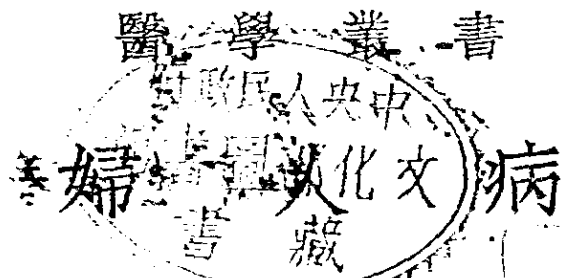 醫學叢書
婦人病
中央人民政府
文化 圖
藏書